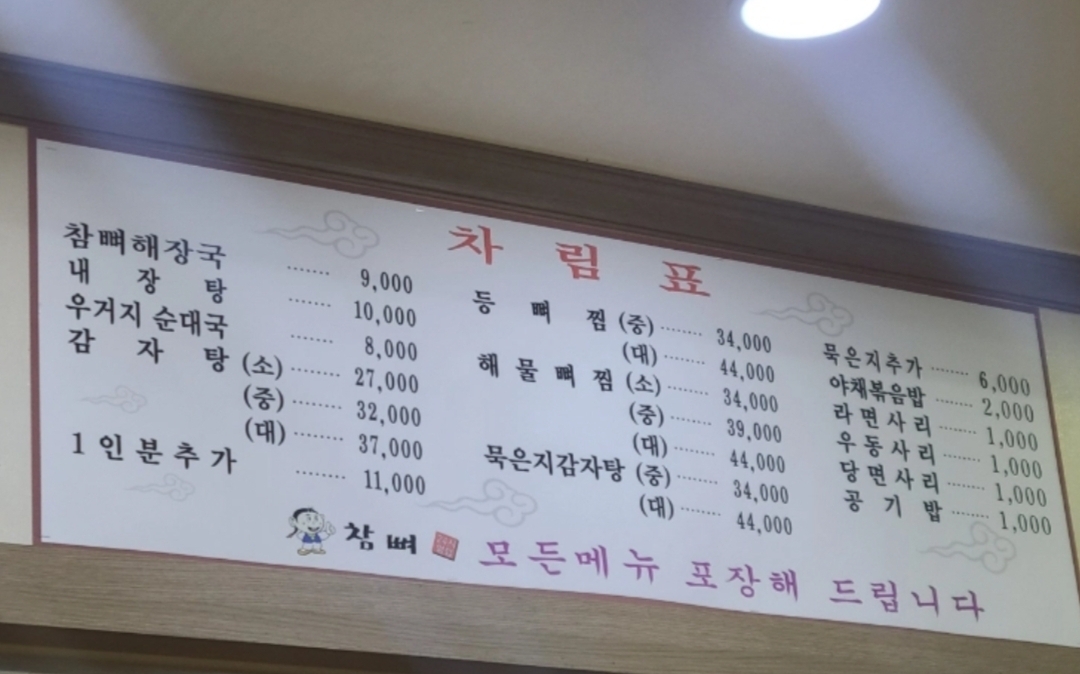 차림표
참뼈해장국 ....... 9,000
내장탕 ....... 10,000
우거지 순대국 ....... 8,000
감자탕 (소) ........ 27,000
(중) ........ 32,000
(대) ........ 37,000
1인분추가 ........ 11,000
등뼈찜 (중) ........ 34,000
(대) ........ 44,000
해물뼈찜 (소) ........ 34,000
(중) ........ 39,000
(대) ........ 44,000
묵은지감자탕 (중) ........ 34,000
(대) ........ 44,000
묵은지추가 ........ 6,000
야채볶음밥 ........ 2,000
라면사리 ........ 1,000
우동사리 ........ 1,000
당면사리 ........ 1,000
공기밥 ........ 1,000
참뼈
모든메뉴 포장해 드립니다